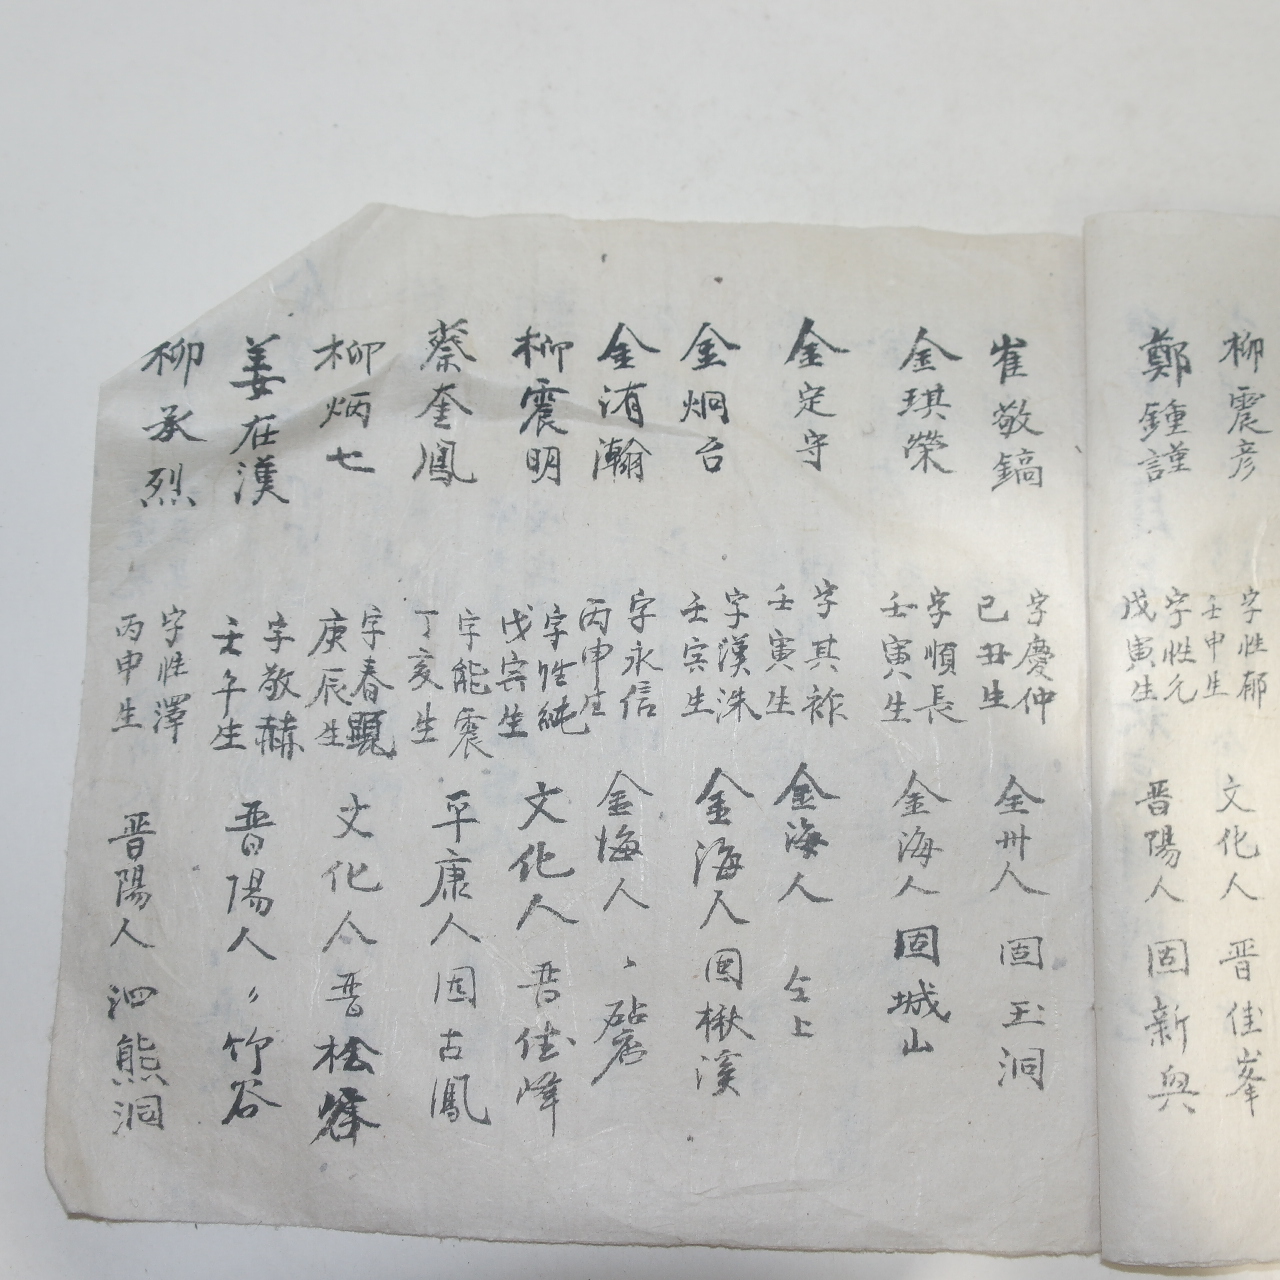 柳震彦 字性郁 壬申生 文化人 晋佳峯
鄭鍾謹 字性允 戊寅生 晋陽人 固新興
崔敬鎬 字慶仲 己丑生 全州人 固玉洞
金琪榮 字順長 壬寅生 金海人 固城山
金定守 字其祚 壬寅生 金海人 仝上
金炯台 字漢洙 壬寅生 金海人 固楸溪
金洧瀚 字永信 丙申生 金海人 〃
柳震明 字性純 戊寅生 文化人 晋佳峰
蔡奎鳳 字能震 丁亥生 平康人 固古鳳
柳炳七 字春顕 庚辰生 文化人 晋桧
姜在漢 字敬赫 壬午生 晋陽人 〃竹谷
柳承烈 字性澤 丙申生 晋陽人 泗熊洞